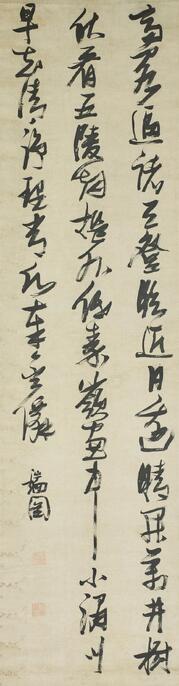 高閣逼諸天登臨近日邊晴開萬井樹
愁看五陵烟檻外低秦嶺窗中小渭川
早知清淨理常願奉金僊
瑞圖